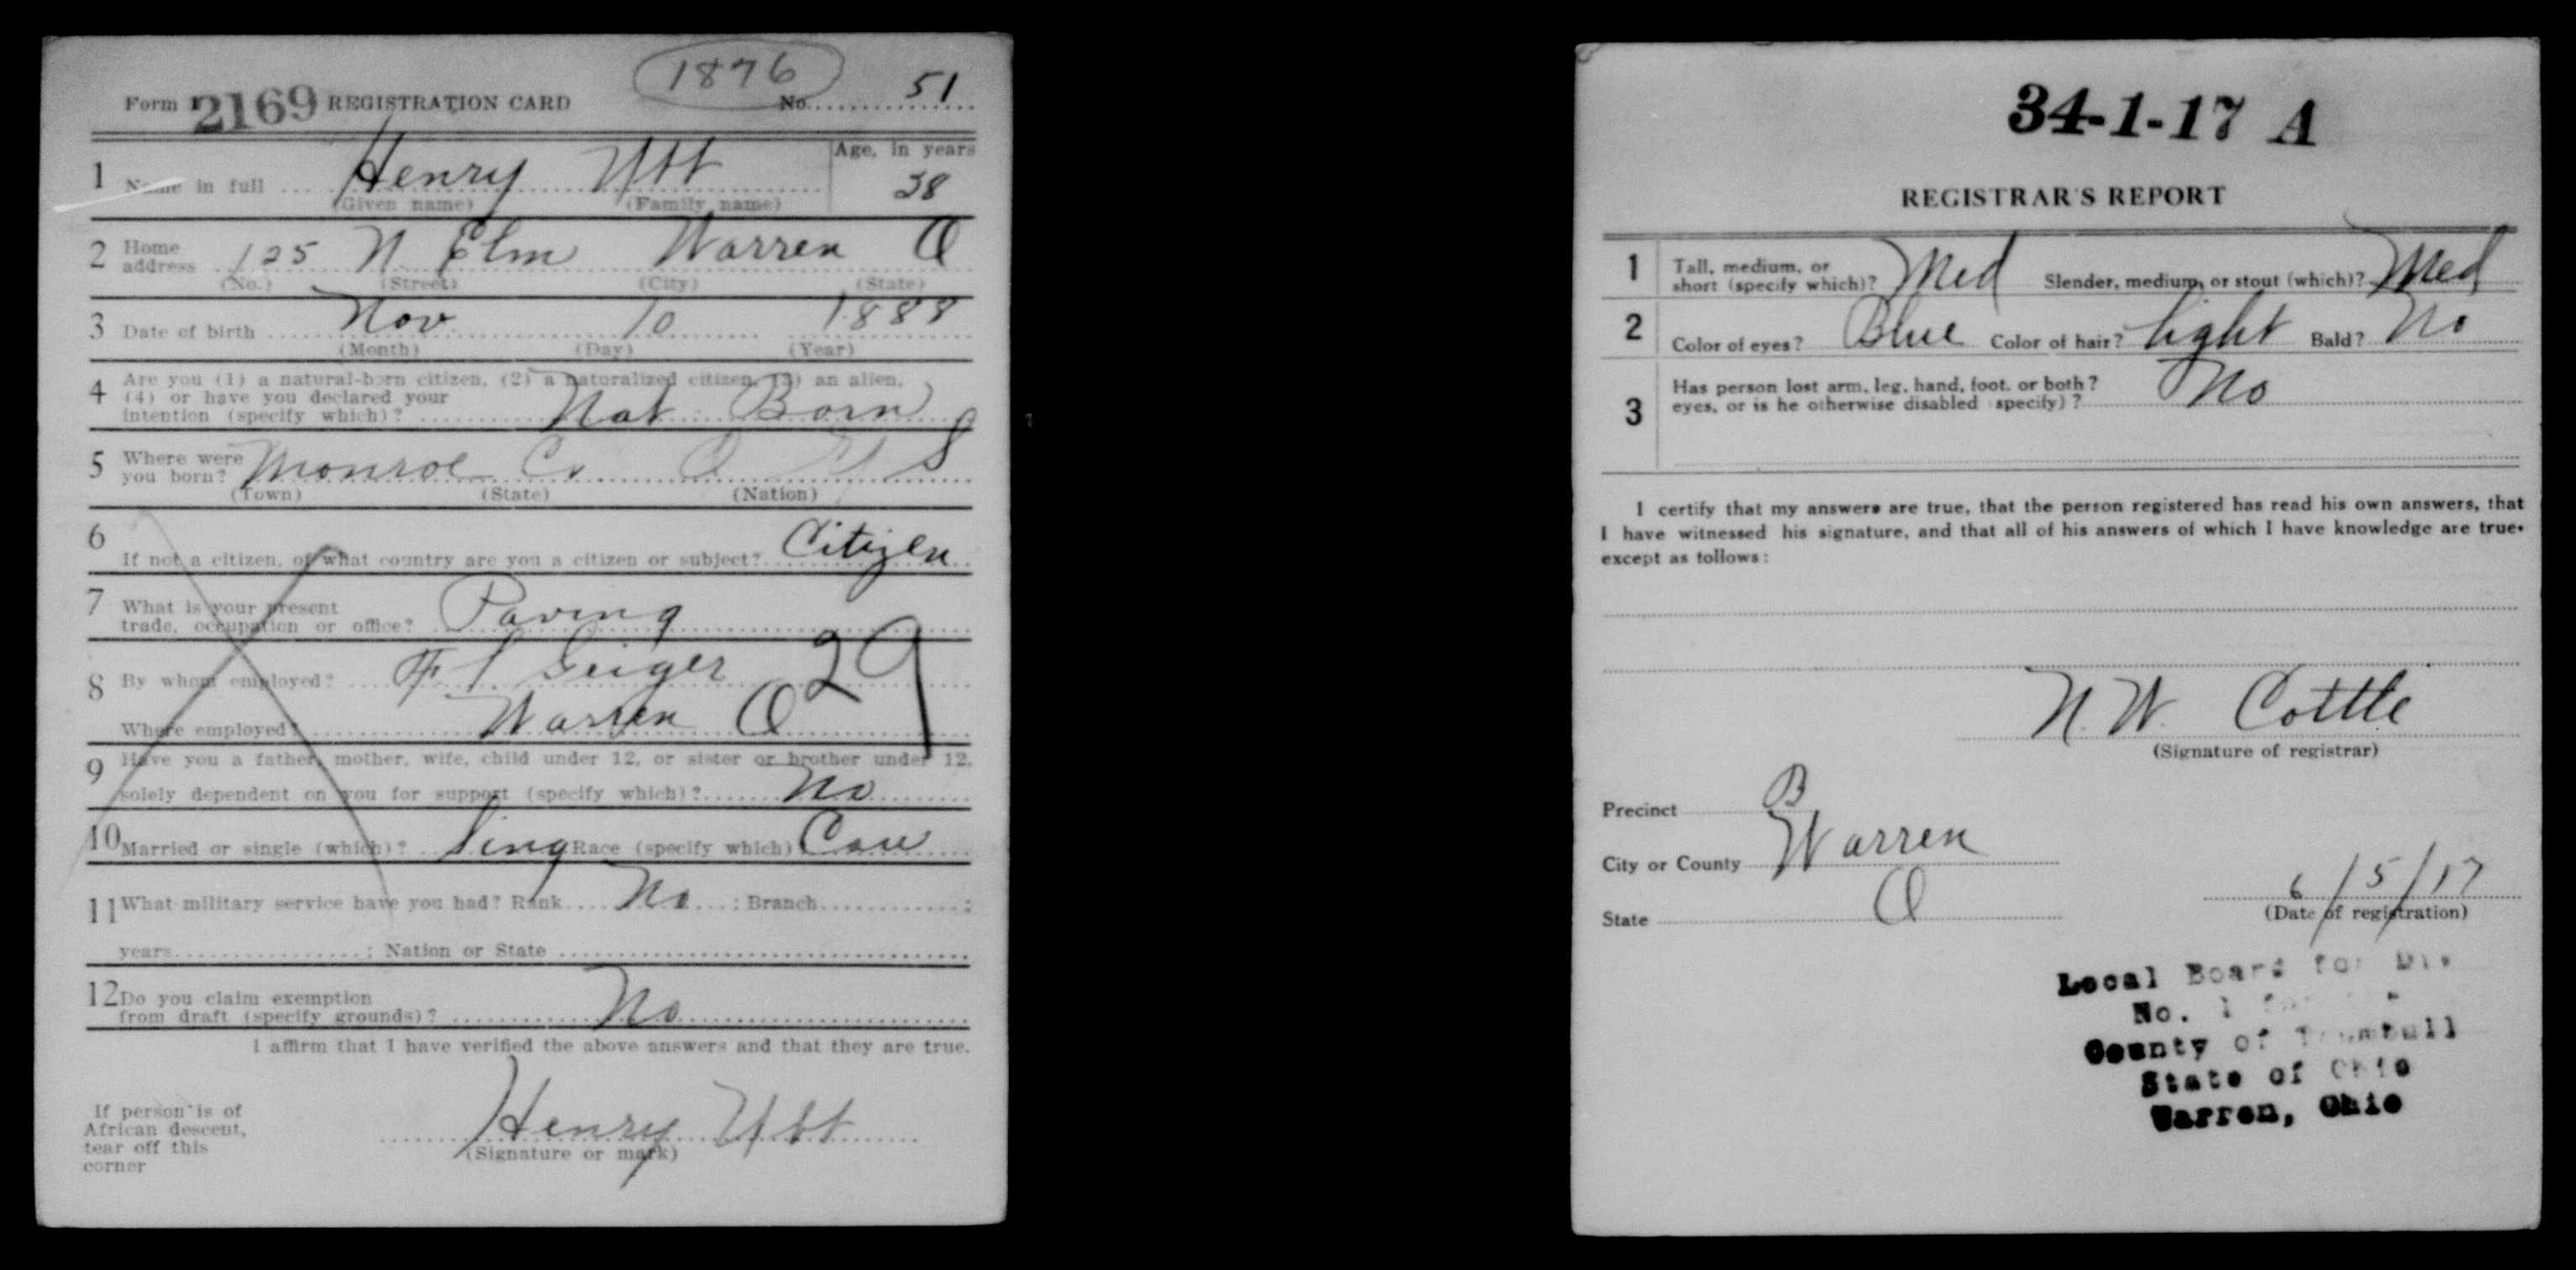 1876
Form 2169 REGISTRATION CARD No. 51
1 Name in full Henry Utt Age, in years
38
(Given name) (Family name)
2 Home address 125 N. Elm Warren O
(No.) (Street) (City) (State)
3 Date of birth Nov. 10 1888
(Month) (Day) (Year)
4 Are you (1) a natural-born citizen, (2) a naturalized citizen, (3) an alien,
(4) or have you declared your
intention (specify which)? Nat. Born
5 Where were you born? Monroe Co O S
(Town) (State) (Nation)
6 If not a citizen, of what country are you a citizen or subject? Citizen
7 What is your present
trade, occupation or office? Paving
8 By whom employed? Geiger 29
Where employed? Warren O
9 Have you a father, mother, wife, child under 12, or sister or brother under 12,
solely dependent on you for support (specify which)? No
10 Married or single (which)? Sing Race (specify which) Cau
11 What military service have you had? Rank No ; Branch ;
years ; Nation or State
12 Do you claim exemption
from draft (specify grounds)? No
I affirm that I have verified the above answers and that they are true.
Henry Utt
(Signature or mark)
If person is of
African descent,
tear off this
corner
34-1-17 A
REGISTRAR'S REPORT
1 Tall, medium, or
short (specify which)? Med Slender, medium, or stout (which)? Med
2 Color of eyes? Blue Color of hair? Light Bald? No
3 Has person lost arm, leg, hand, foot, or both?
eyes, or is he otherwise disabled specify)? No
I certify that my answers are true, that the person registered has read his own answers, that
I have witnessed his signature, and that all of his answers of which I have knowledge are true.
except as follows:
N. W. Cottle
(Signature of registrar)
Precinct B
City or County Warren
State O
6/5/17
(Date of registration)
Local Board for Div.
No. 1
County of Trumbull
State of Ohio
Warren, Ohio